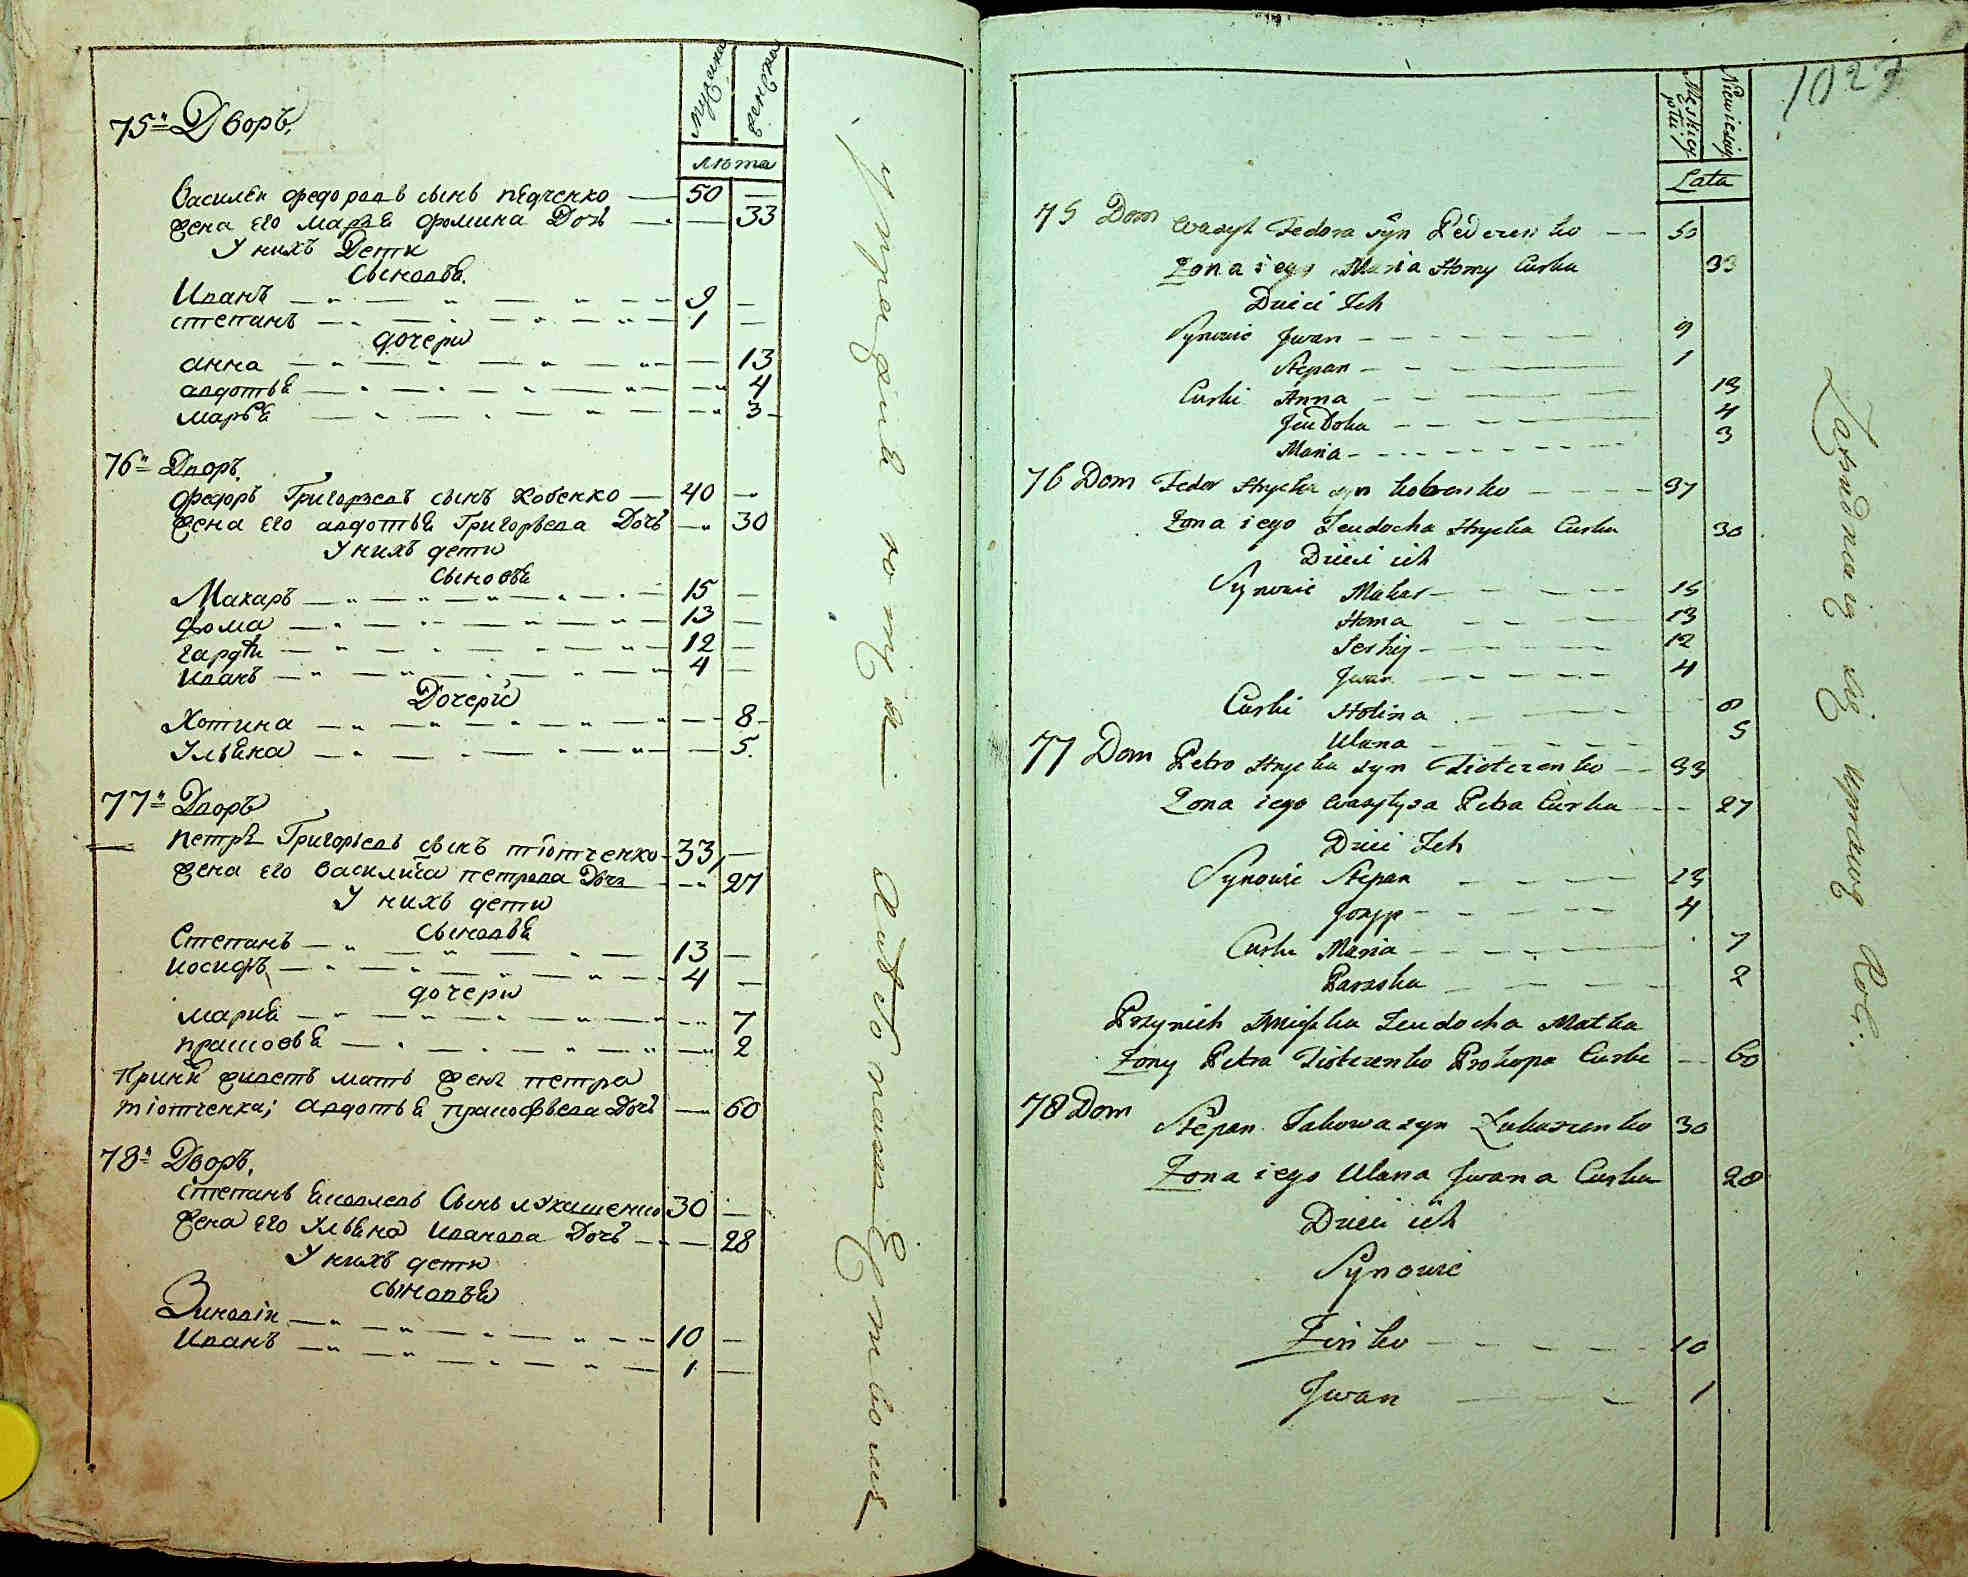 мужеска
женска
лѣта
75й Дворъ.
Василеи федоровъ сынъ педченко — 50 —
жена его Марья фомина Дочь — — 33
У нихъ Дети
Сыновья.
Иванъ — 9 —
степанъ — 1 —
дочери
анна — — 13
авдотья — — 4
марья — — 3
76й Дворъ.
федоръ Григорьевъ сынъ кобенко — 40 —
жена его авдотья Григорьева Дочь — 30
У нихъ дети
сыновья
Макаръ — 15 —
фома — 13 —
12 —
Иванъ — 4 —
Дочери
Хотина — — 8
Ульяна — — 5
77й Дворъ
петръ Григорьевъ сынъ тiотченко 33, —
жена его василиса петрова Дочь — 27
У нихъ дети
Сыновья
Степанъ — 13 —
иосифъ — 4 —
дочери
мария — — 7
прасковья — — 2
При нихъ живетъ мать жены петра
тiотченка; авдотья прокофьева Дочь — 60
78й Дворъ.
степанъ яковлевъ Сынъ лукашенко 30 —
жена его Ульяна иванова Дочь — — 28
У нихъ дети
сыновья
Зиновiи — 10 —
Иванъ — 1 —
1027
Męskiey płci
Niewiesciey
Lata
75 Dom Wasyl Fedora syn Pedczenko — 50
Zona iego Maria Homy Curka 33
Dzieci Ich
Synowie Jwan — 9
Stepan — 1
Curki Anna — 13
Jeudoka — 4
Maria — 3
76 Dom Fedor Hryćka syn kobenko — 37
Zona iego Jeudocha Hryćka Curka 30
Dzieci ich
Synowie Makar — 15
Homa — 13
12
Jwan — 4
Curki Hotina — 8
Ulana — 5
77 Dom Petro Hryćka syn Tiotczenko — 33
Zona iego Wasylysa Petra Curka — 27
Dzieci Ich
Synowie Stepan — 13
Jozyp — 4
Curki Maria — 7
Paraska — 2
Przynich Mieszka Jeudocha Matka
Zony Petra Tiotczenko Prokopa Curka — 60
78 Dom
Stepan Jakowa syn Łukaszenko 30
Zona iego Ulana Jwana Curka 28
Dzieci ich
Synowie
Zinko — 10
Jwan — 1
Zatrudnaią się uprawą Roli.